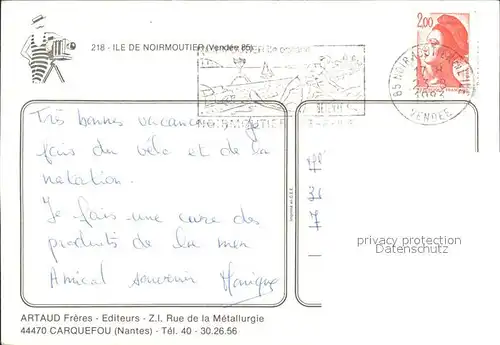 218 - ILE DE NOIRMOUTIER (Vendée 85)
2,00
VENDEE
NOIRMOUTIER
Très bonnes vacances. Je
fais du vélo et de la
natation.
Je fais une cure des
produits de la mer
Amical souvenir Monique
privacy protection
Datenschutz
ARTAUD Frères - Editeurs - Z.I. Rue de la Métallurgie
44470 CARQUEFOU (Nantes) - Tél. 40 - 30.26.56